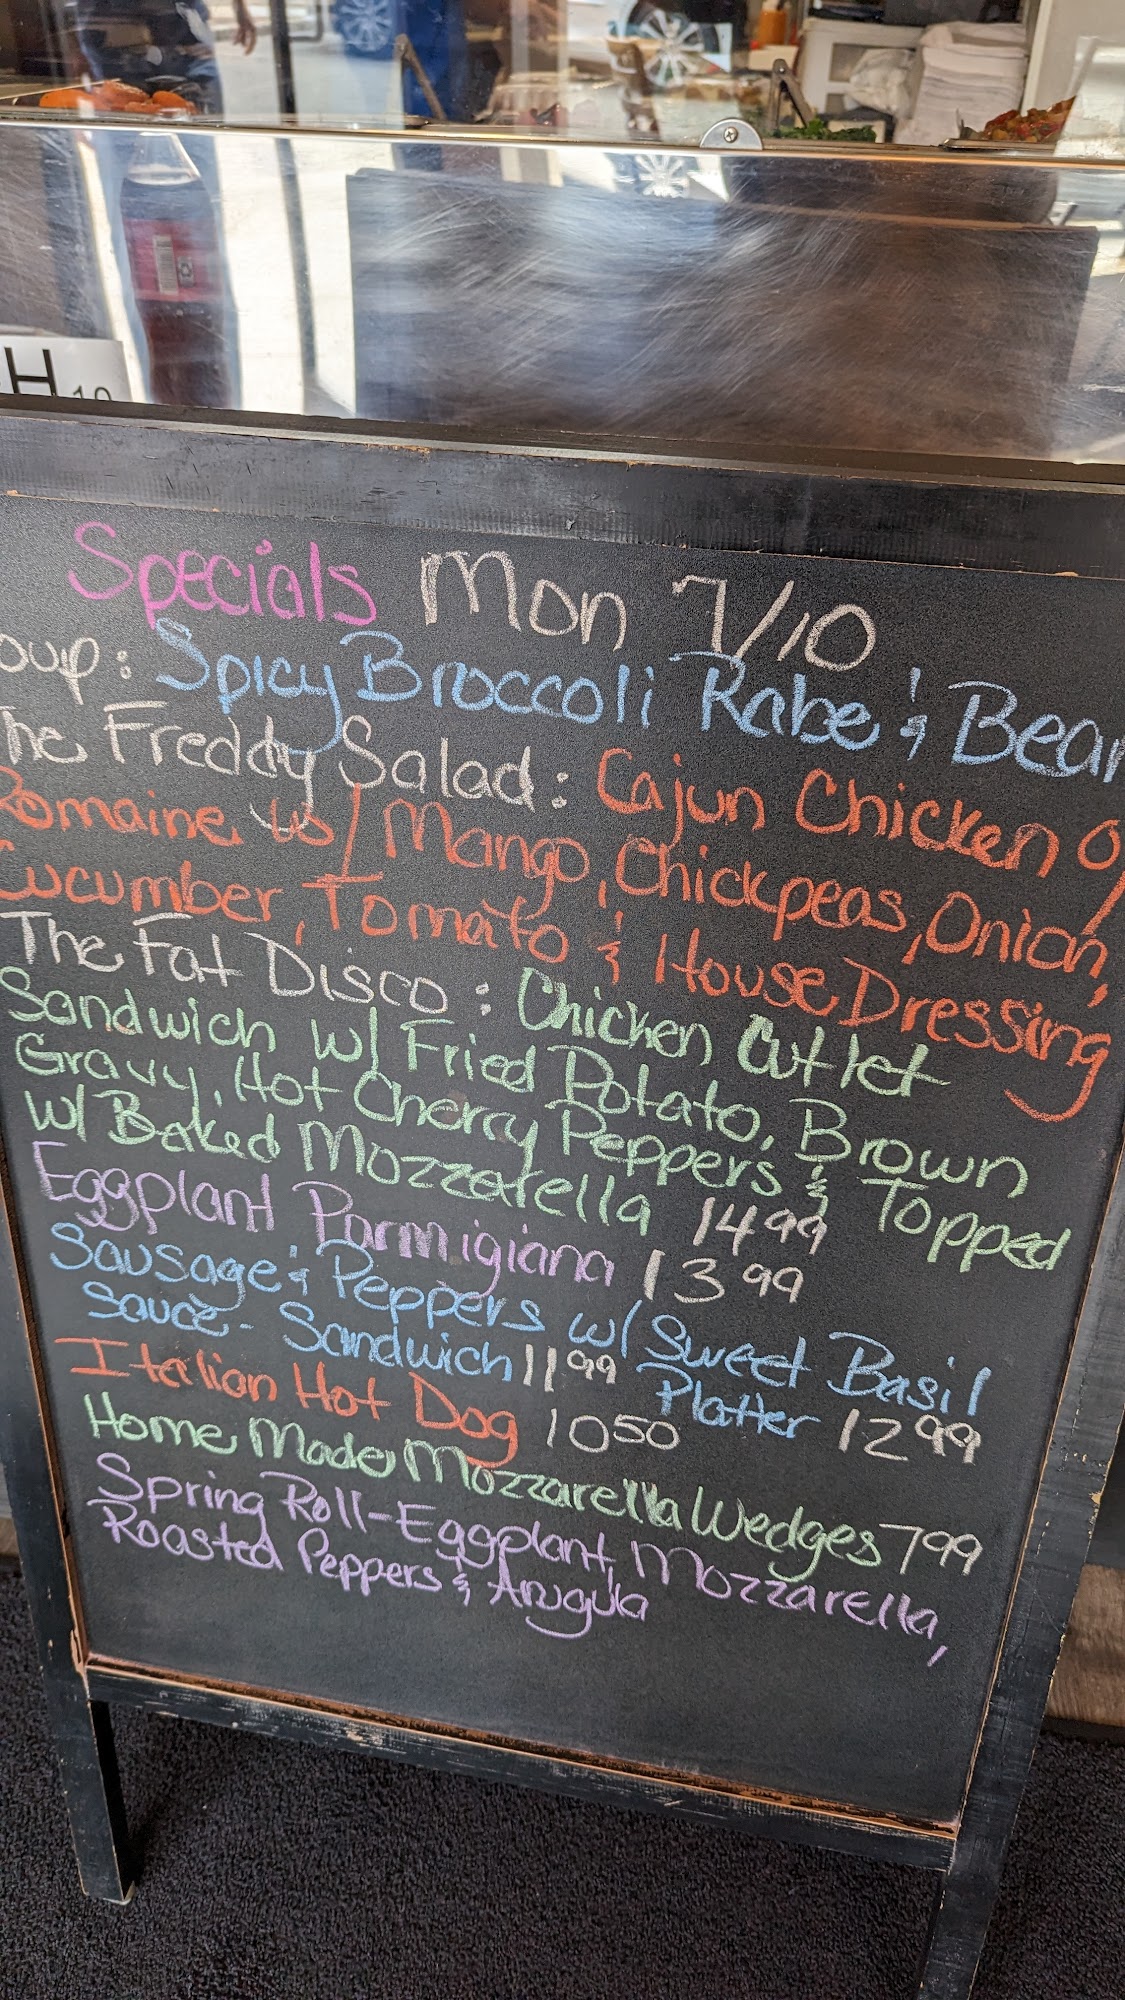 H 10
Specials Mon 7/10
oup: Spicy Broccoli Rabe & Bean
The Freddy Salad: Cajun Chicken o/
Romaine w/ Mango, Chickpeas, Onion,
Cucumber, Tomato & House Dressing
The Fat Disco: Chicken Cutlet
Sandwich w/ Fried Potato, Brown
Gravy, Hot Cherry Peppers & Topped
w/ Baked Mozzarella 14 99
Eggplant Parmigiana 13 99
Sausage & Peppers w/ Sweet Basil
sauce - Sandwich 11 99 Platter 12 99
Italian Hot Dog 10 50
Home Made Mozzarella Wedges 7 99
Spring Roll-Eggplant, Mozzarella,
Roasted Peppers & Arugula